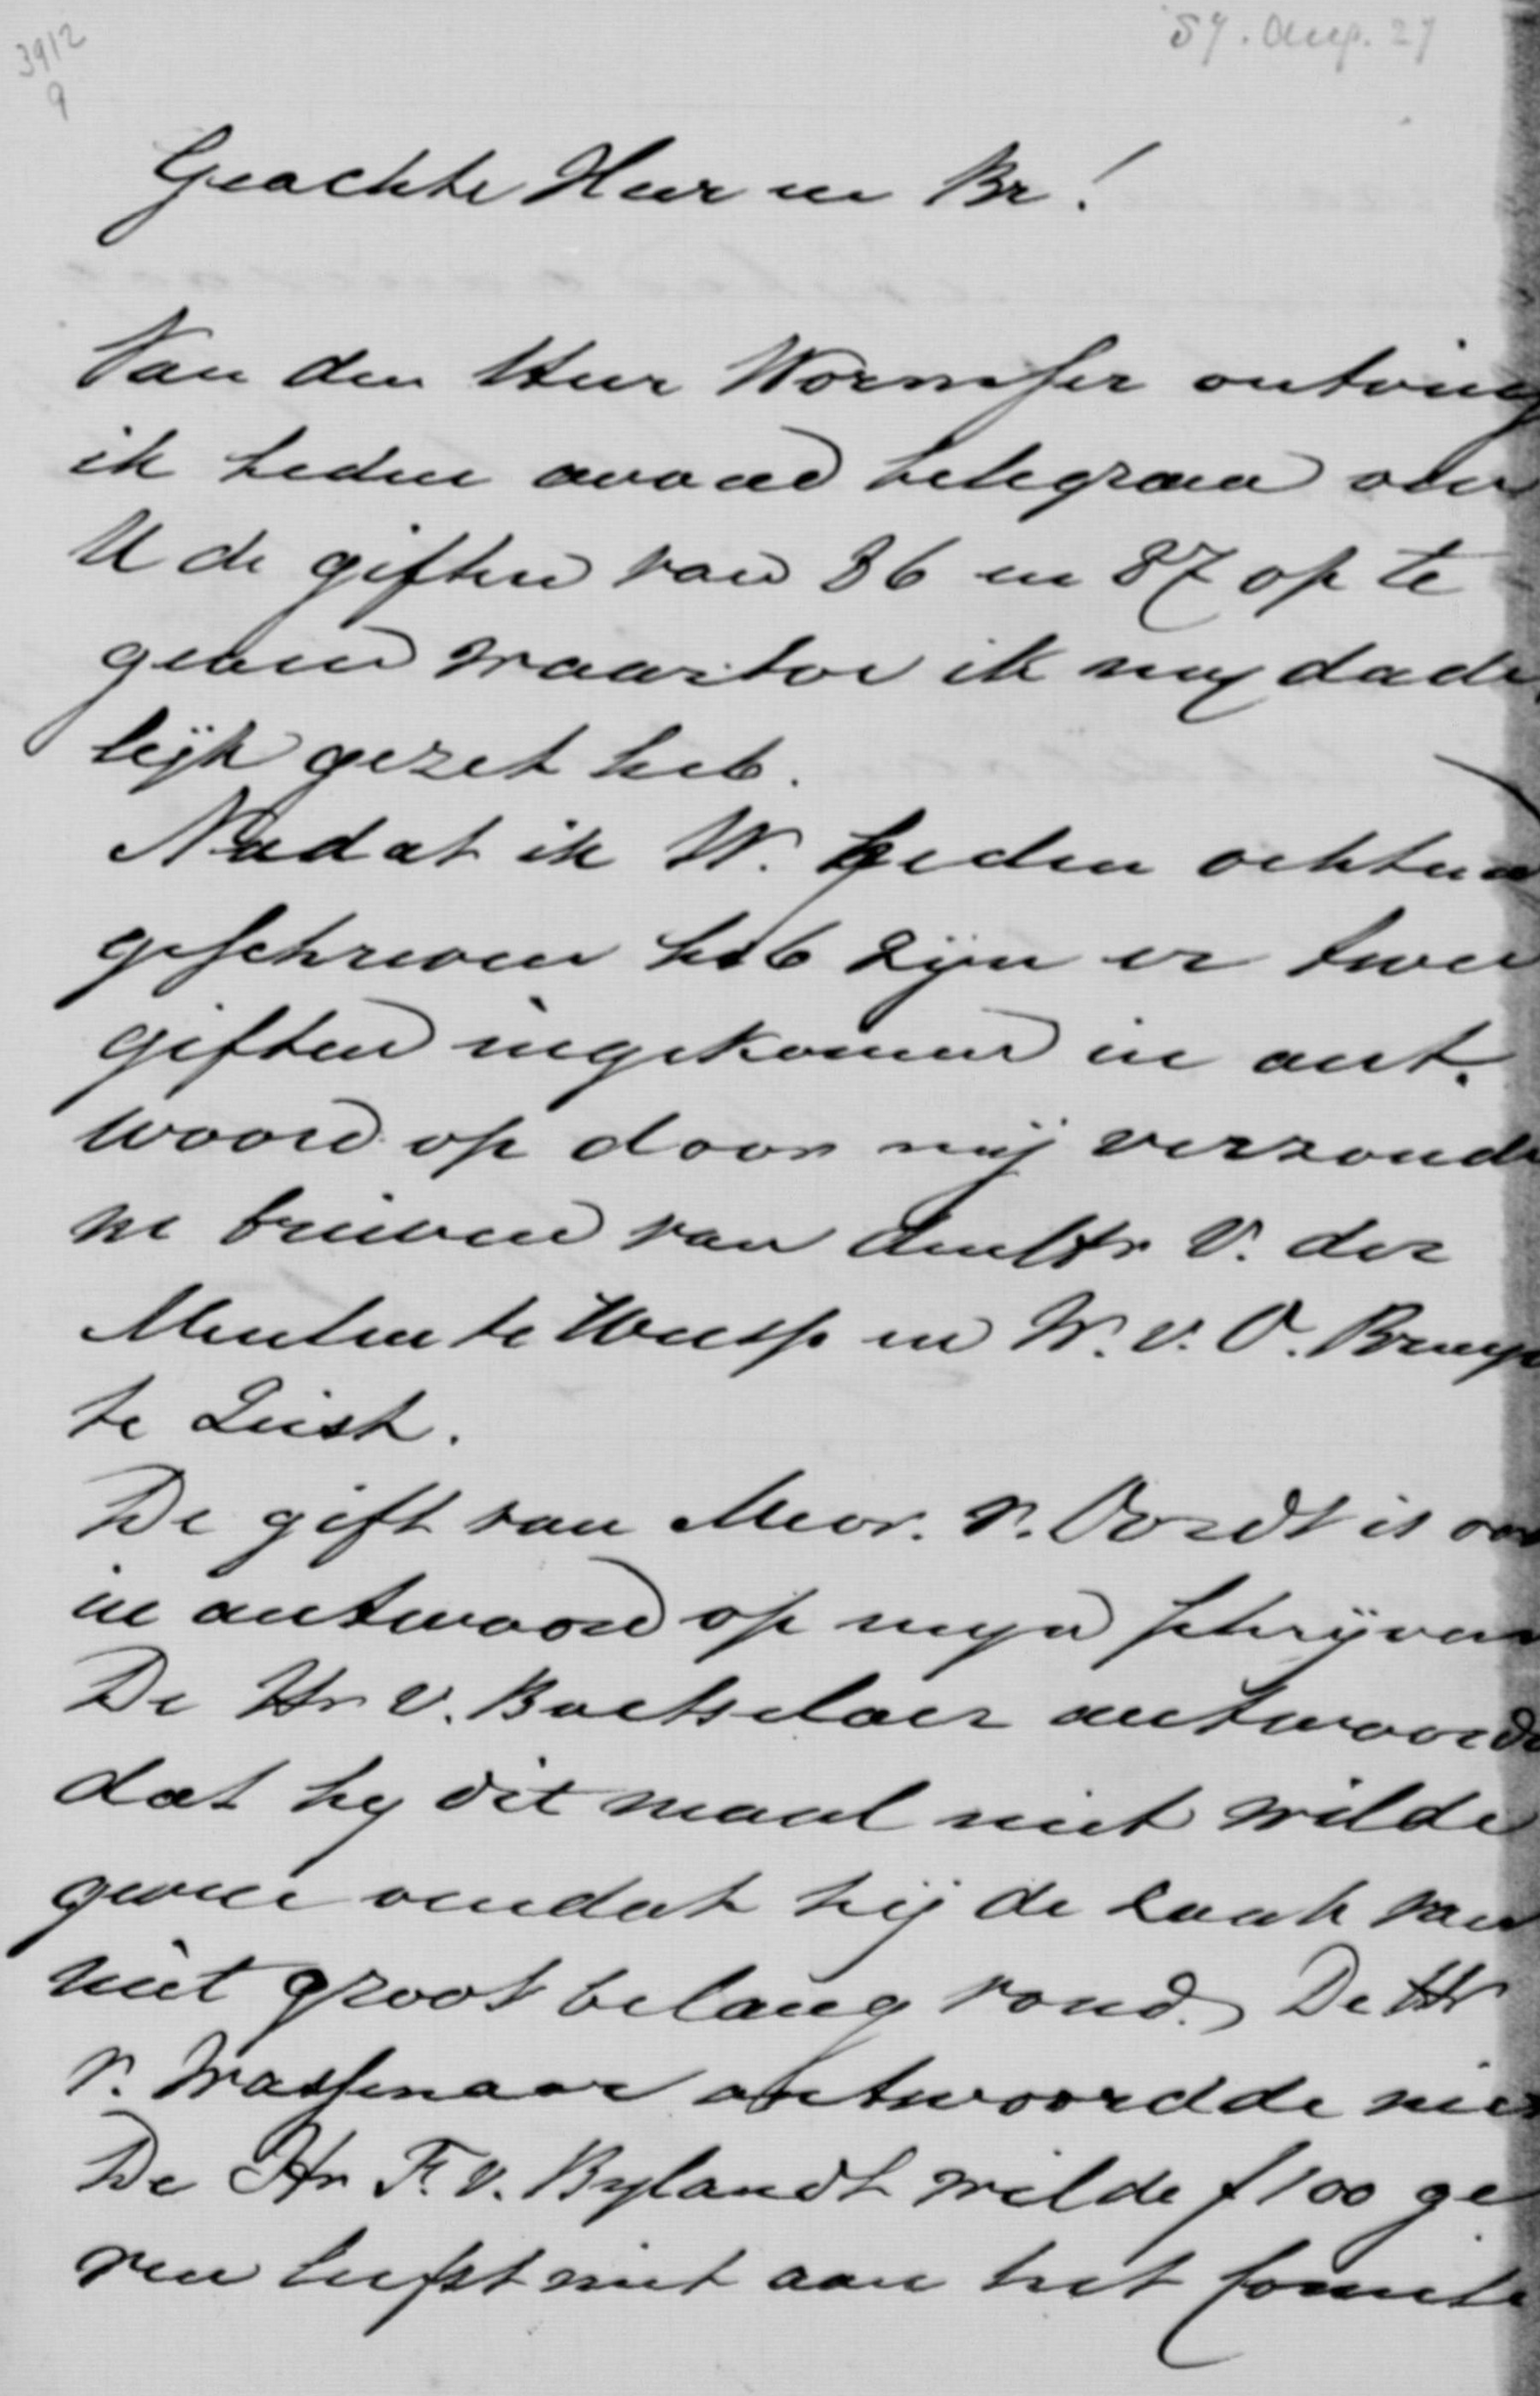 3912
9
87. Aug. 27
Geachte Heer en Br!
Van den Heer Wormser ontving
ik heden avond telegram om
U de giften van 86 en 87 op te
geven waartoe ik my dade
lijk gezet heb.
Nadat ik W. heden ochtend
geschreven heb zijn er twee
giften ingekomen in ant.
woord op door mij verzonde
ne brieven van den Hr V. der
Meulen te Weesp en W. v. O. Bruyn
te Zeist.
De gift van Mevr. v. Oordt is ook
in antwoord op myn schrijven
De Hr v. Boetselaer antwoordde
dat hy dit maal niet wilde
geven omdat hij de zaak van
niet groot belang vond. De Hr
v. Wassenaar antwoordde niet
De Hr F. v. Bylandt wilde f 100 ge
ven liefst niet aan het Comite